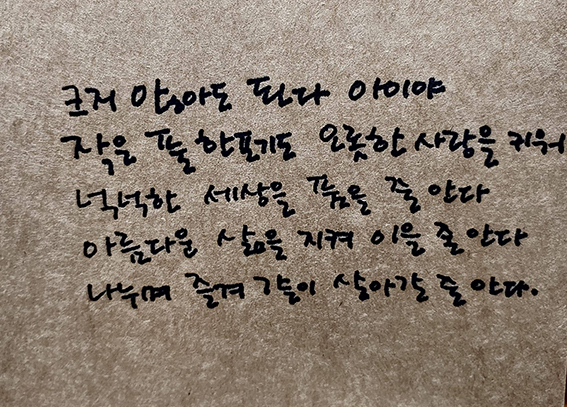 크지 않아도 된다 아이야
작은 풀 한포기도 오롯한 사랑을 키워
넉넉한 세상을 품을 줄 안다
아름다운 삶을 지켜 이을 줄 안다
나누며 즐겨 같이 살아갈 줄 안다.